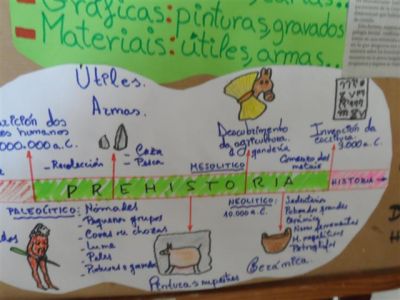 Gráficas: pinturas, gravados
Materiais: útiles, armas..
Útiles.
Armas.
dos
humanos
000.000 a.C.
- Recolección
- Caza
- Pesca
Descubrimento
da agricultura
& gandería
MESOLÍTICO
Invención da
escritura
3.000 a.C.
Comenzo dos
metais
PREHISTORIA
HISTORIA
PALEOLÍTICO:
- Nómades
- Pequenos grupos
- Covas de chozas
- Lume
- Peles
Pinturas rupestres
NEOLÍTICO:
10.000 a.C.
- Sedentarios
- Poboados grandes
- Cerámica
- Novas ferramentas
- M. megalíticos
- Petroglifos
Cerámica.